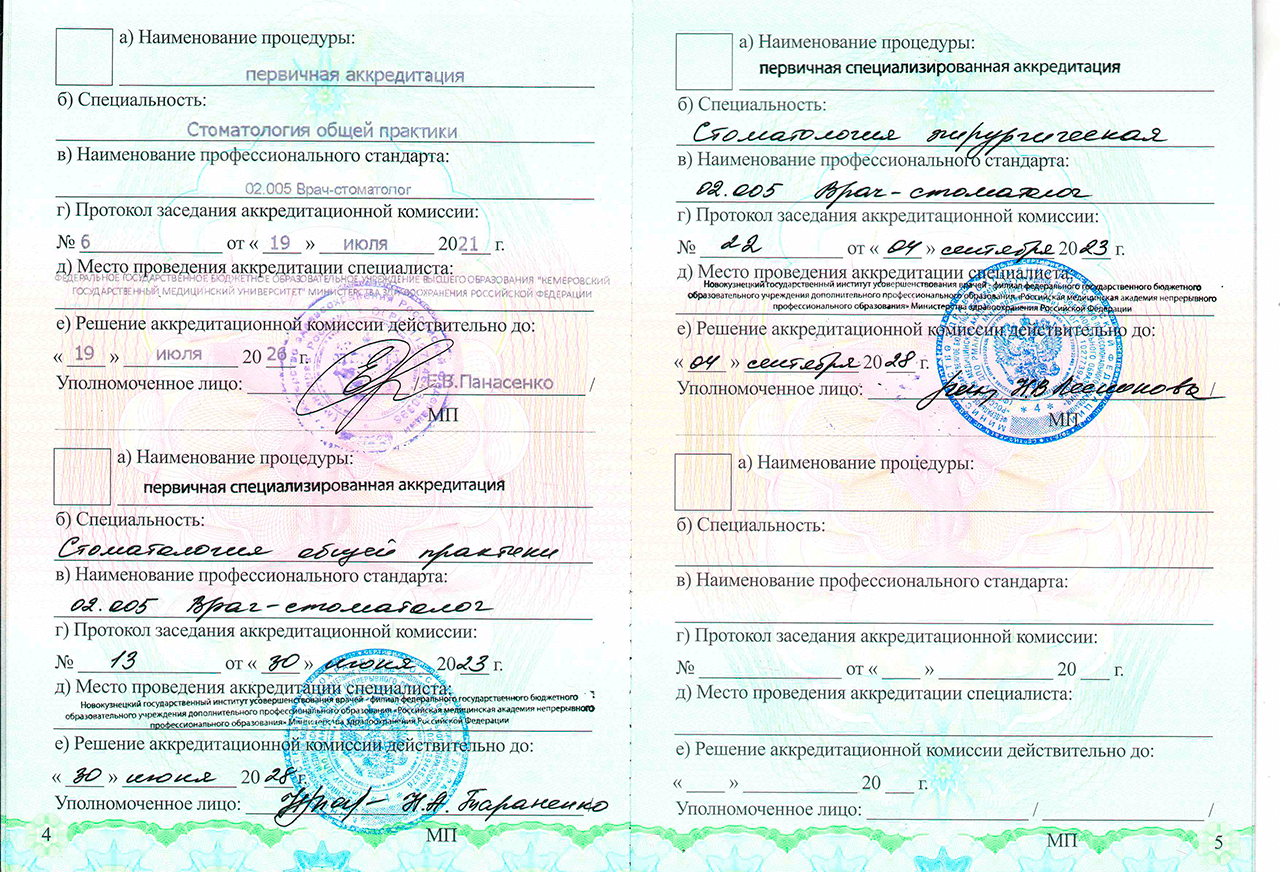 а) Наименование процедуры:
первичная аккредитация
б) Специальность:
Стоматология общей практики
в) Наименование профессионального стандарта:
02.005 Врач-стоматолог
г) Протокол заседания аккредитационной комиссии:
№ 6 от « 19 » июля 2021 г.
д) Место проведения аккредитации специалиста:
ФЕДЕРАЛЬНОЕ ГОСУДАРСТВЕННОЕ БЮДЖЕТНОЕ ОБРАЗОВАТЕЛЬНОЕ УЧРЕЖДЕНИЕ ВЫСШЕГО ОБРАЗОВАНИЯ "КЕМЕРОВСКИЙ
ГОСУДАРСТВЕННЫЙ МЕДИЦИНСКИЙ УНИВЕРСИТЕТ" МИНИСТЕРСТВА ЗДРАВООХРАНЕНИЯ РОССИЙСКОЙ ФЕДЕРАЦИИ
е) Решение аккредитационной комиссии действительно до:
« 19 » июля 20 26 г.
Уполномоченное лицо: / Е.В.Панасенко /
МП
а) Наименование процедуры:
первичная специализированная аккредитация
б) Специальность:
Стоматология общей практики
в) Наименование профессионального стандарта:
02.005 Врач-стоматолог
г) Протокол заседания аккредитационной комиссии:
№ 13 от « 30 » июня 2023 г.
д) Место проведения аккредитации специалиста:
Новокузнецкий государственный институт усовершенствования врачей - филиал федерального государственного бюджетного
образовательного учреждения дополнительного профессионального образования «Российская медицинская академия непрерывного
профессионального образования» Министерства здравоохранения Российской Федерации
е) Решение аккредитационной комиссии действительно до:
« 30 » июня 20 28 г.
Уполномоченное лицо: Н.А. Тараненко
МП
4
а) Наименование процедуры:
первичная специализированная аккредитация
б) Специальность:
Стоматология хирургическая
в) Наименование профессионального стандарта:
02.005 Врач-стоматолог
г) Протокол заседания аккредитационной комиссии:
№ 22 от « 04 » сентября 2023 г.
д) Место проведения аккредитации специалиста:
Новокузнецкий государственный институт усовершенствования врачей - филиал федерального государственного бюджетного
образовательного учреждения дополнительного профессионального образования «Российская медицинская академия непрерывного
профессионального образования» Министерства здравоохранения Российской Федерации
е) Решение аккредитационной комиссии действительно до:
« 04 » сентября 20 28 г.
Уполномоченное лицо: Н.В. /
МП
а) Наименование процедуры:
б) Специальность:
в) Наименование профессионального стандарта:
г) Протокол заседания аккредитационной комиссии:
№ от « » 20 г.
д) Место проведения аккредитации специалиста:
е) Решение аккредитационной комиссии действительно до:
« » 20 г.
Уполномоченное лицо: / /
МП
5